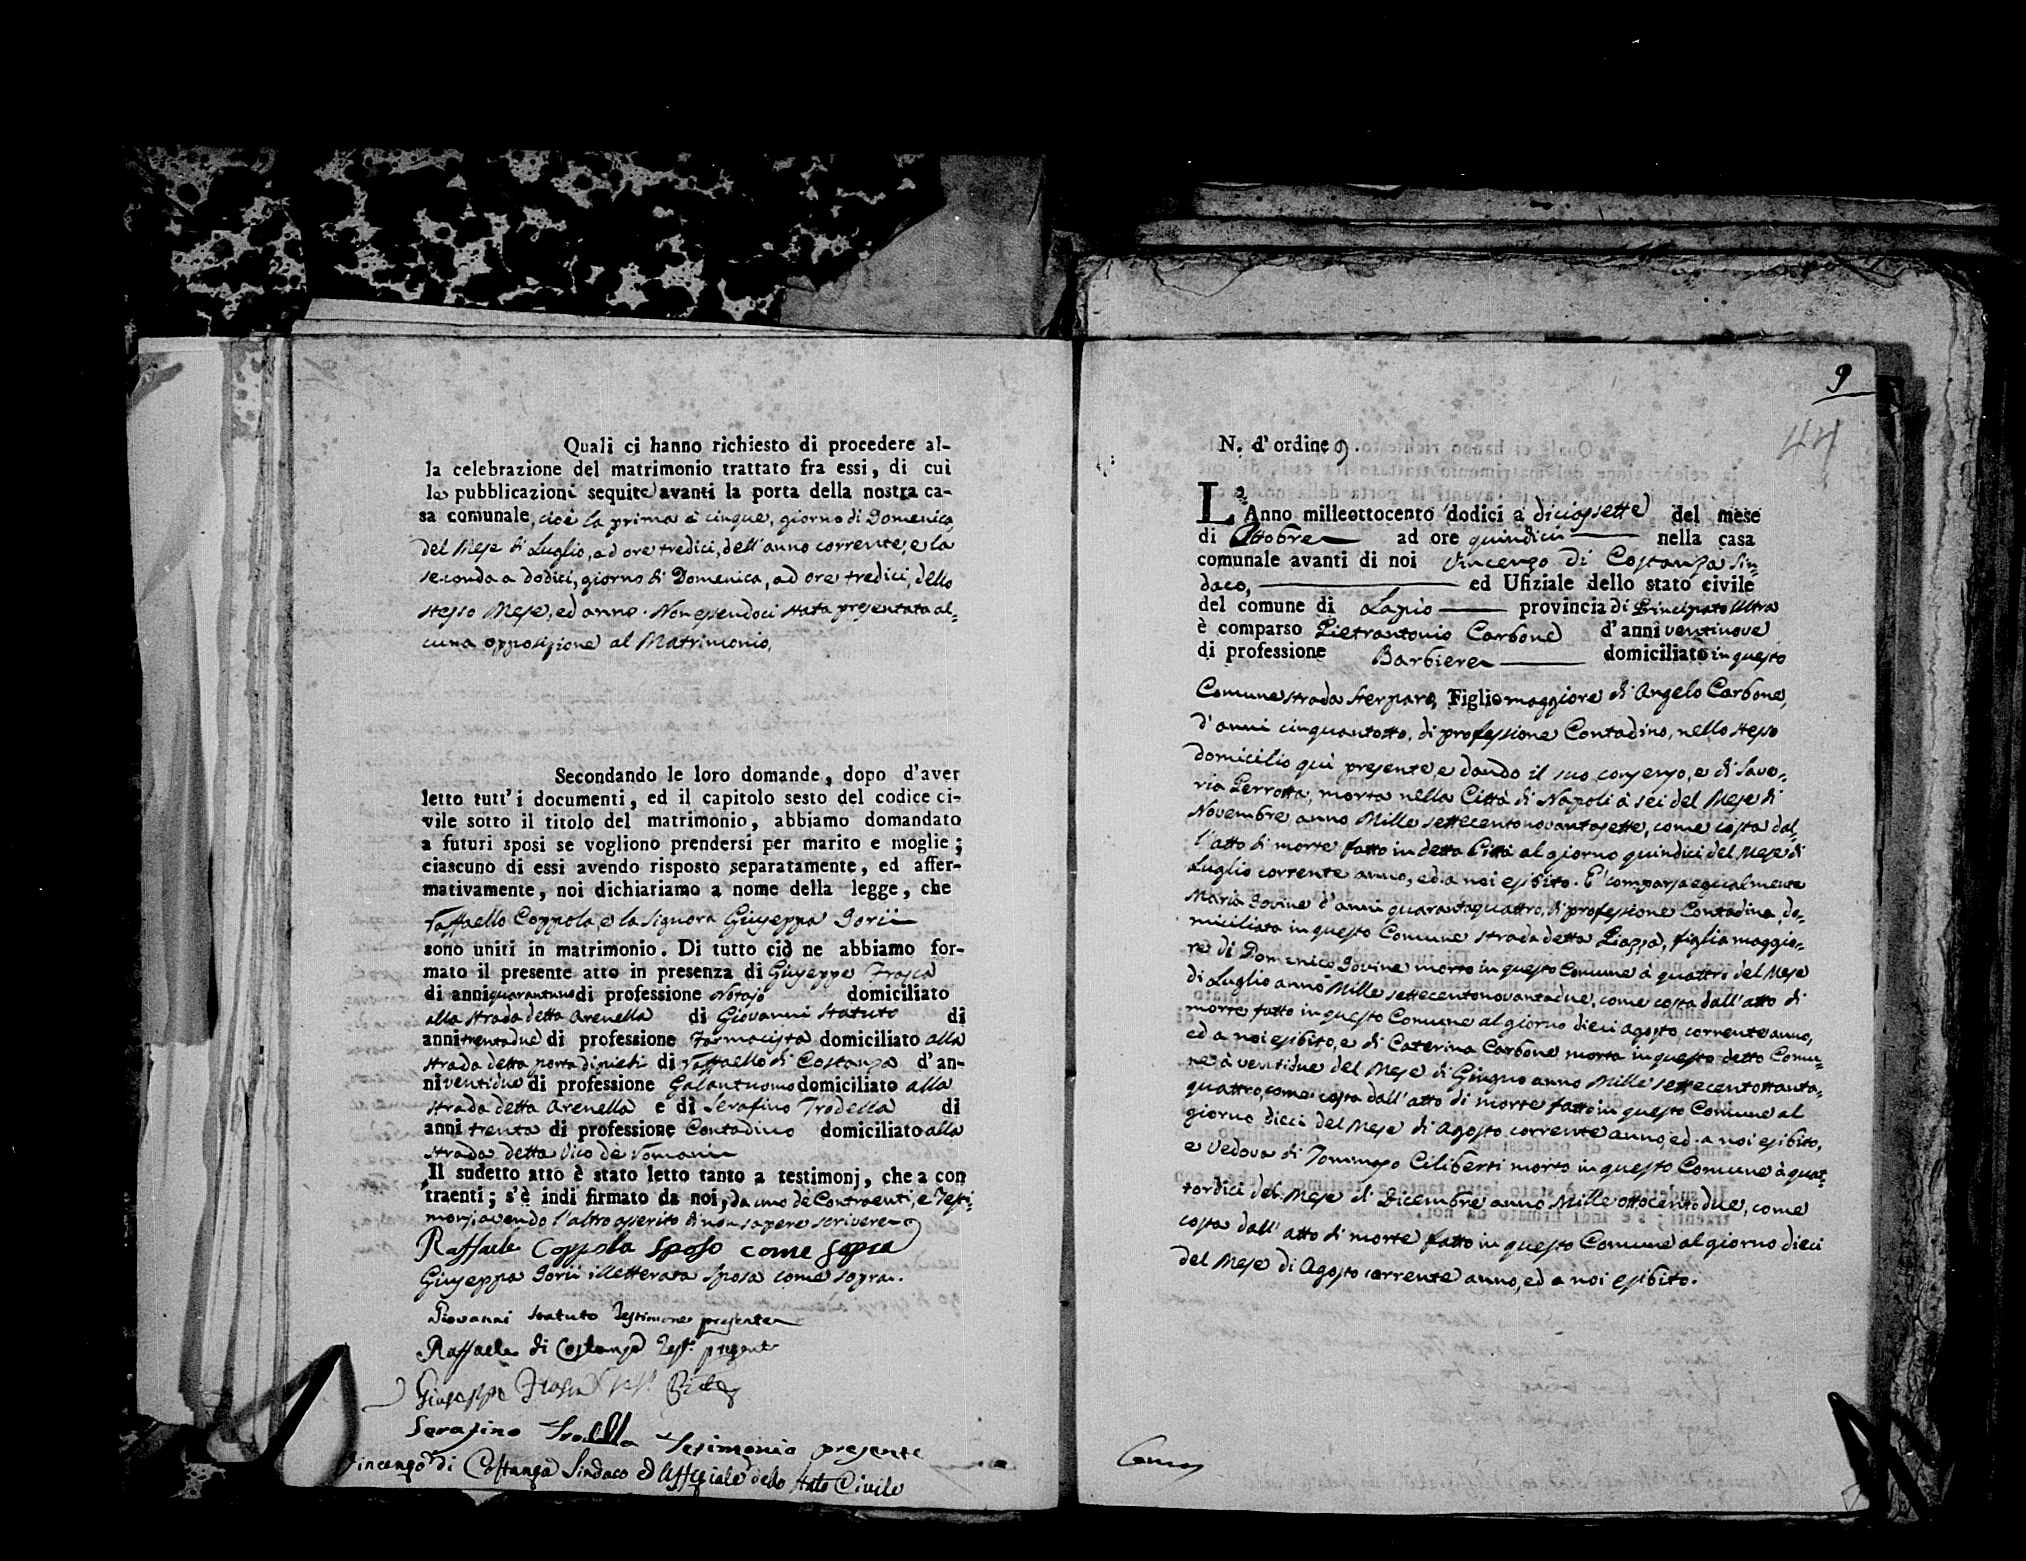 Quali ci hanno richiesto di procedere al-
la celebrazione del matrimonio trattato fra essi, di cui
le pubblicazioni sequite avanti la porta della nostra ca-
sa comunale, cioè la prima a cinque, giorno di Domenica,
del Mese di Luglio, ad ore tredici, dell'anno corrente, e la
seconda a dodici, giorno di Domenica, ad ore tredici, dello
stesso Mese, ed anno. Non essendoci stata presentata al-
cuna opposizione al Matrimonio.
Secondando le loro domande, dopo d'aver
letto tutt'i documenti, ed il capitolo sesto del codice ci-
vile sotto il titolo del matrimonio, abbiamo domandato
a futuri sposi se vogliono prendersi per marito e moglie;
ciascuno di essi avendo risposto separatamente, ed affer-
mativamente, noi dichiariamo a nome della legge, che
Raffaello Coppola, e la Signora Giuseppa Iorii
sono uniti in matrimonio. Di tutto ciò ne abbiamo for-
mato il presente atto in presenza di Giuseppe Frasca
di anni quarantuno di professione Notajo domiciliato
alla strada detta Arenella di Giovanni Statuto di
anni trentadue di professione Farmacista domiciliato alla
strada detta porta di di Raffaello di Costanza d'an-
ni ventidue di professione Galantuomo domiciliato alla
strada detta Arenella e di Serafino Trodella di
anni trenta di professione Contadino domiciliato alla
strada detta Vico de Romani
Il sudetto atto è stato letto tanto a testimonj, che a con
traenti; s'è indi firmato da noi, da uno de Contraenti, e Testi-
monj, avendo l'altro asserito di non sapere scrivere
Raffaele Coppola sposo come sopra
Giuseppa Iorii illetterata sposa come sopra.
Giovanni Statuto Testimone presente
Raffaele di Costanza Test. presente
Giuseppe Frasca
Serafino Trodella Testimonio presente
Vincenzo di Costanza Sindaco ed Uffiziale dello Stato Civile
9
44
N. d'ordine 9.
L'Anno milleottocento dodici a diciassette del mese
di Ottobre ad ore quindici nella casa
comunale avanti di noi Vincenzo di Costanza Sin-
daco, ed Ufiziale dello stato civile
del comune di Lapio provincia di Principato Ultra
è comparso Pietrantonio Carbone d'anni ventinove
di professione Barbiere domiciliato in questo
Comune strada Sterparo, Figlio maggiore di Angelo Carbone,
d'anni cinquantotto, di professione Contadino, nello stesso
domicilio quì presente, e dando il suo consenso, e di Save-
ria Perrotta, morta nella Città di Napoli à sei del Mese di
Novembre anno Mille settecentonovantasette, come costa dal-
l'atto di morte fatto in detta Città al giorno quindici del Mese di
Luglio corrente anno, ed a noi esibito. E' comparsa egualmente
Maria Iovine d'anni quarantaquattro, di professione Contadina, do-
miciliata in questo Comune strada detta Piazza, figlia maggio-
re di Domenico Iovine morto in questo Comune à quattro del Mese
di Luglio anno Mille settecentonovantadue, come costa dall'atto di
morte fatto in questo Comune al giorno dieci Agosto corrente anno,
ed a noi esibito, e di Caterina Carbone morta in questo detto Comu-
ne à ventidue del Mese di Giugno anno Mille settecentottanta-
quattro, come costa dall'atto di morte fatto in questo Comune al
giorno dieci del Mese di Agosto corrente anno, ed a noi esibito,
e Vedova di Tommaso Ciliberti morto in questo Comune à quat-
tordici del Mese di Dicembre anno Mille ottocento due, come
costa dall'atto di morte fatto in questo Comune al giorno dieci
del Mese di Agosto corrente anno, ed a noi esibito.